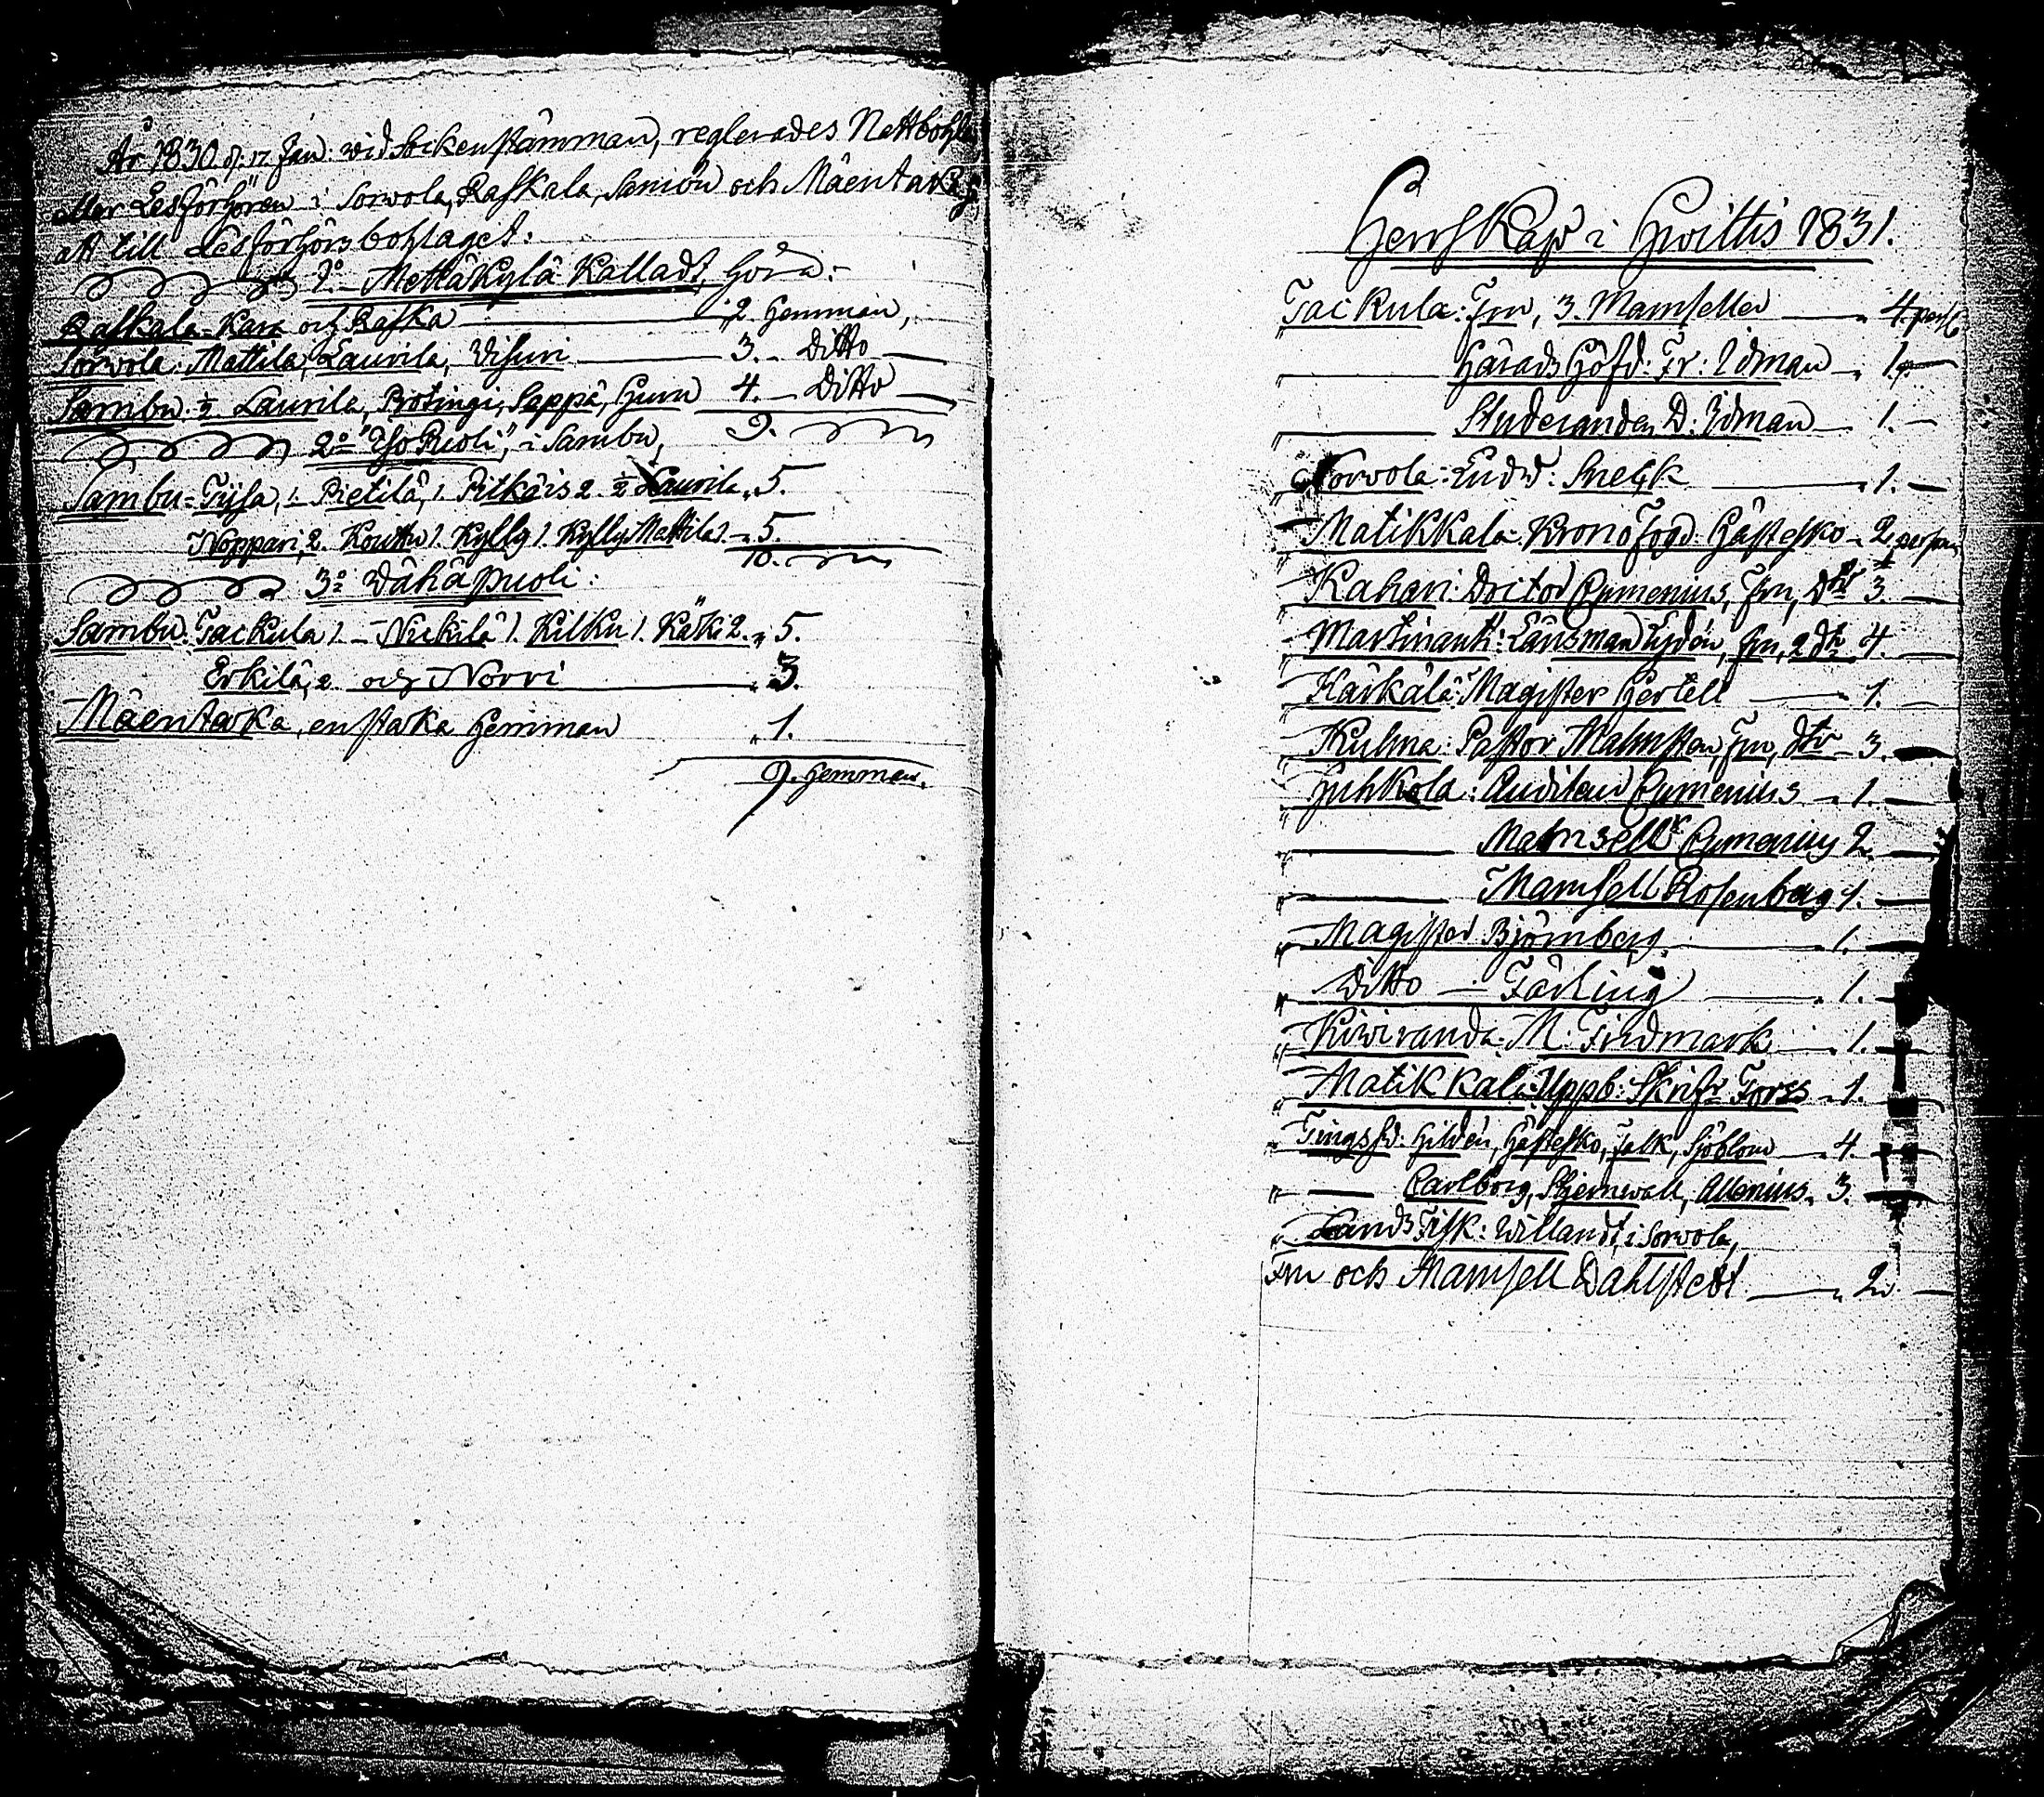 År 1830 d. 17 Jan: wid Sockenstämman, reglerades Nattbohla
eller Läsförhören i Sorvola, Raskala, Sambu och Mäentaka
att till Läsförhörsbohlaget:
1º Metsäkylä Kalladt, höra:
Raskala: Kara och Raska 2. Hemman,
Sorvola: Mattila, Laurila, Visuri 3. Ditto
Sambu: ½ Laurila, Protingi, Seppä, Huru 4. Ditto
9.
2º "Iso Puoli", i Sambu,
Sambu: Tyssa, 1. Pietilä, 1. Pitkäis 2. ½ Laurila 5.
Noppari, 2. Kouttu 1. Kylly 1. Kylly Mattila 1. 5.
10.
3º Wähäpuoli:
Sambu: Tackula 1. Nickilä 1. Kilku 1. Käki 2. 5.
Erkilä, 2 och Norri 3.
Mäentaka, enstaka Hemman 1.
9. Hemman.
Herrskap i Hwittis 1831.
Tackula: Fru, 3. Mamseller 4. pers
Härads Höfd: Fr: Idman 1.
Studeranden D. Idman 1.
Sorvola: Ludv: Sneck 1.
Matikkala: Krono Fogd. Hästesko 2. person
Kahari: Doctor Pymenius, Fru, Dtr 3.
Martinanti: Länsman Lydén, Fru, 2 dtr 4.
Karkälä: Magister Hertell 1.
Kulma: Pastor Malmsten, Fru, dtr 3.
Huhkola: Auditeur Cymenius 1.
Mamsellr Cymenius 2.
Mamsell Rosenberg 1.
Magister Björnberg 1.
Ditto Färling 1.
Kiviranda: M. Tindmark 1.
Matikkala: Uppb: Skrifr Forss 1.
Tingssk: Hildén, Hästesko, Falk, Sjöblom 4.
Carlborg, Stjernwall, Allenius 3.
Lands Fisk: Willandt, i Sorvola,
Fru och Mamsell Dahlstedt 2.